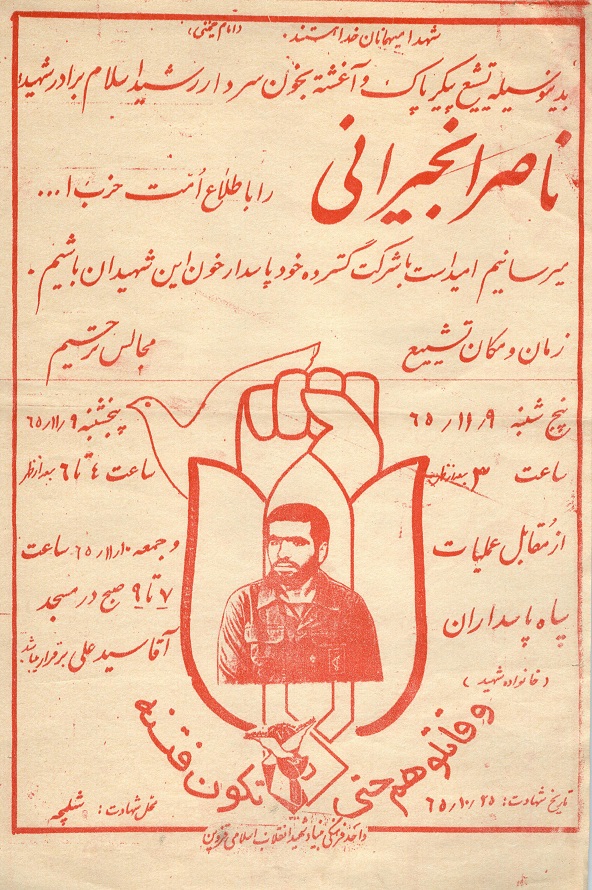 شهدا میهمانان خدا هستند. (امام خمینی)
بدینوسیله تشیع پیکر پاک و آغشته بخون سردار رشید اسلام برادر شهید
ناصر انجیرانی
را باطلاع اُمت حزب ا...
میرسانیم امید است با شرکت گسترده خود پاسدار خون این شهیدان باشیم.
زمان و مکان تشییع
پنج شنبه ۶۵/۱۱/۹
ساعت ۳ بعدازظهر
از مُقابل عملیات
سپاه پاسداران
(خانواده شهید)
مجالس ترحیم
پنجشنبه ۶۵/۱۱/۹
ساعت ٤ تا ۶ بعدازظهر
و جمعه ۶۵/۱۱/۱۰ ساعت
۷ تا ۹ صبح در مسجد
آقا سید علی برقرار میباشد
و قاتلوهم حتی لا تکون فتنه
تاریخ شهادت: ۶۵/۱۰/۲۵
محل شهادت: شلمچه
واحد فرهنگی بنیاد شهید انقلاب اسلامی قزوین